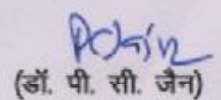 PCJain
(डॉ. पी. सी. जैन)